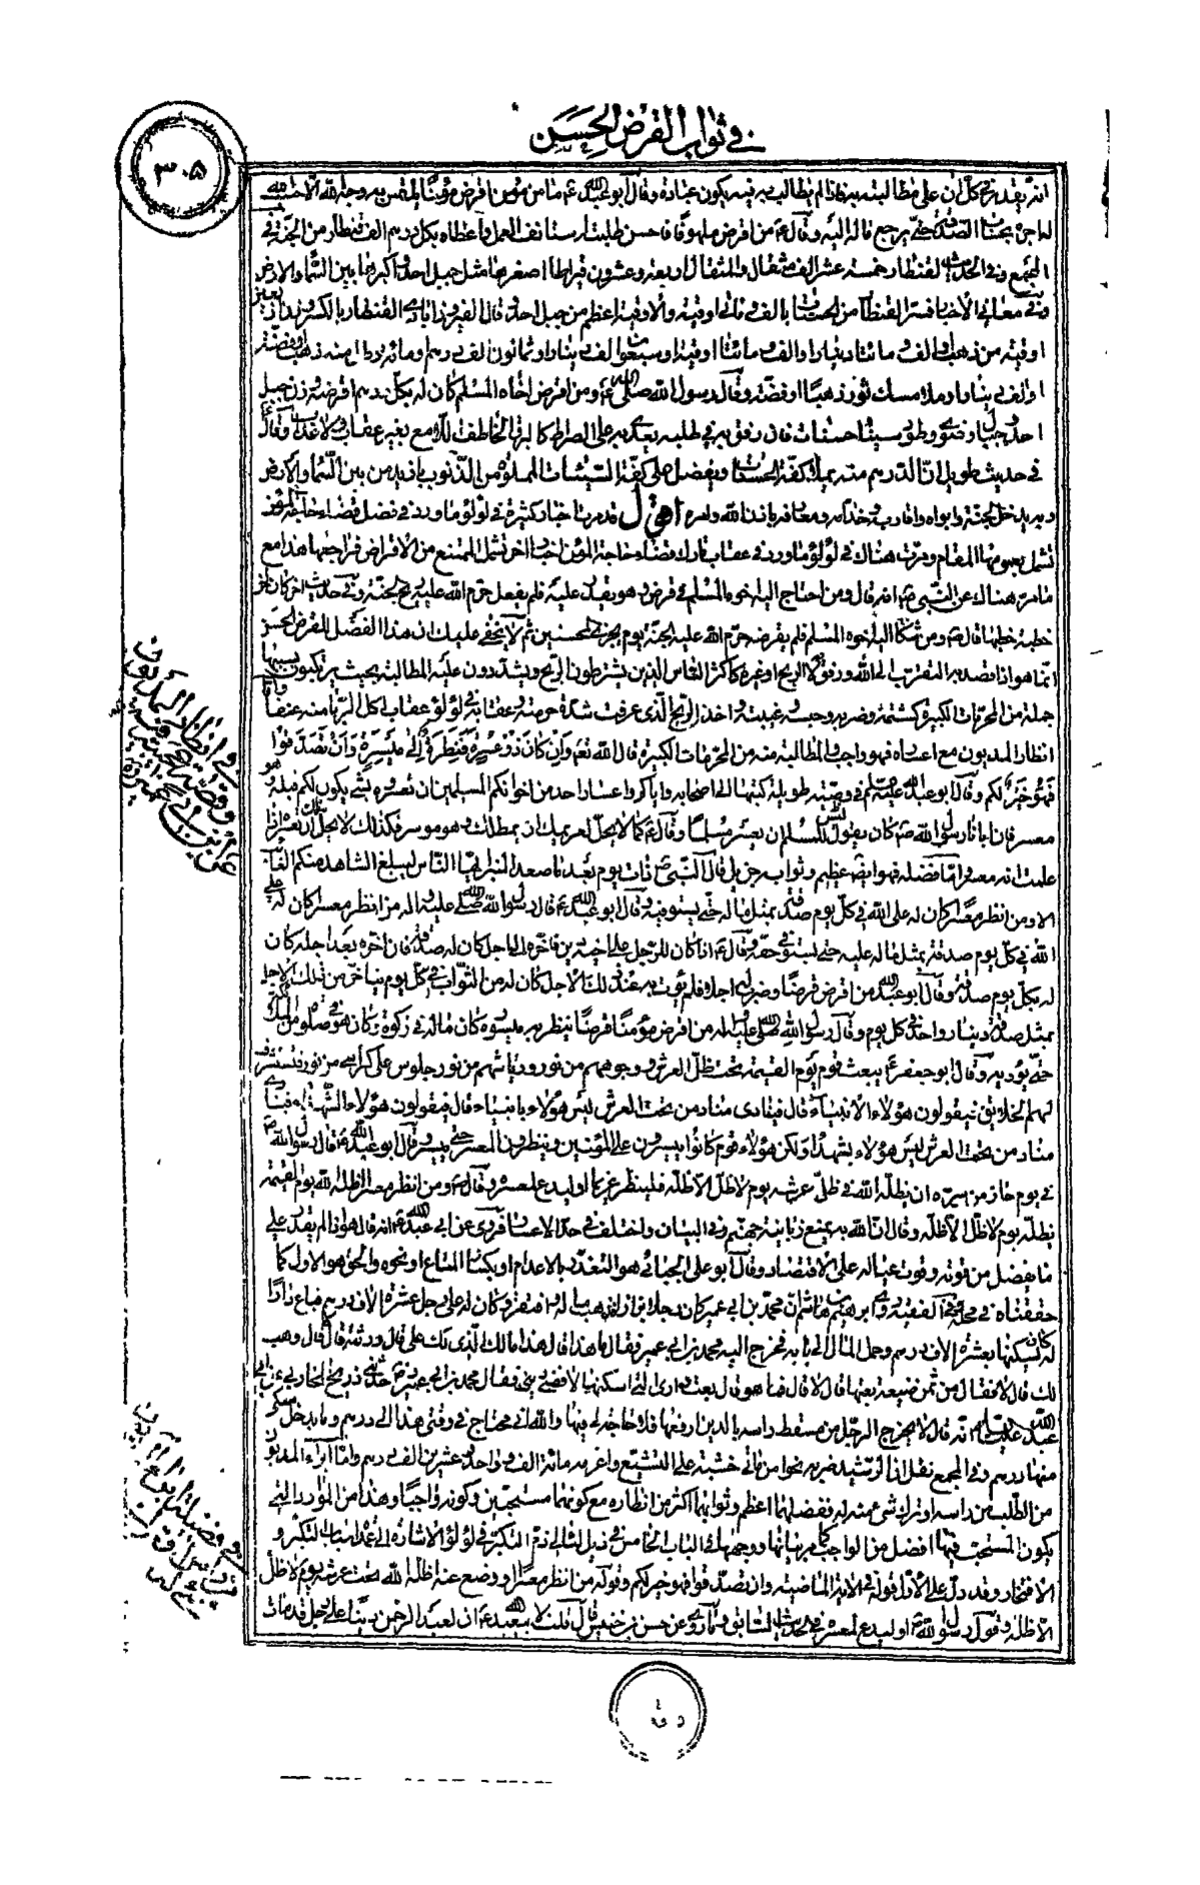 في ثواب القرض الحسن
٣٠٥
وقال أبو عبد الله ما من مؤمن اقرض مؤمنا يلتمس به وجه الله الا حسب له
اجره بحساب الصدقة حتى يرجع ماله اليه وقال من اقرض ملهوفا فاحسن طلبته استانف العمل واعطاه بكل درهم الف قنطار من الجنة في
المجمع وفي الحديث القنطار خمسة عشر الف مثقال والمثقال اربعة وعشرون قيراطا اصغرها مثل جبل احد واكبرها ما بين السماء والارض
وفي معاني الاخبار فسر القنطار من الحسنات بالف ومائتي اوقية والاوقية اعظم من جبل احد وقال الفيروزابادي القنطار بالكسر
اوقية من ذهب او الف ومائتا دينار او الف ومائتا اوقية او سبعون الف دينار او ثمانون الف درهم ومائة رطل من ذهب او فضة
او الف دينار او ملأ مسك ثور ذهبا او فضة وقال رسول الله صلى الله ومن اقرض اخاه المسلم كان له بكل درهم اقرضه وزن جبل
احد من جبال رضوى وطور سيناء حسنات فان رفق به في طلبه يعبر به على الصراط كالبرق الخاطف اللامع بغير حساب ولا عذاب وقال
في حديث طويل ان الدرهم منه يملأ كفة الحسنات ويفضل على كفة السيئات المملوة من الذنوب بازيد من بين السماء والارض
اقول قد مرت اخبار كثيرة في لؤلؤ ما ورد في فضل قضاء حاجة المؤمن
تشمل بعمومها المقام ومرت هناك في لؤلؤ ما ورد في عقاب تارك قضاء حاجة المؤمن اخبار اخر تشمل الممتنع من الاقراض فراجعها هذا مع
ما مر هناك عن النبي انه قال ومن احتاج اليه اخوه المسلم في قرض وهو يقدر عليه فلم يفعل حرم الله عليه ريح الجنة وفي حديث اخر كان في
خطبة خطبها قال ومن شكا اليه اخوه المسلم فلم يقرضه حرم الله عليه الجنة يوم يجزي المحسنين ثم لا يخفى عليك ان هذا الفضل للقرض الحسن
انما هو اذا قصد به التقرب الى الله ورفق لا الربح وغيره كاكثر الناس الذين يشترطون الربح ويشددون عليه المطالبة بحيث يرتكبون بسببها
جملة من المحرمات الكبيرة كشتمه وضربه وحبسه وغيبته واخذ الربح الذي عرفت شدة حرمته وعقابه في لؤلؤ عقاب اكل الربا
انظار المديون مع اعساره فهو واجب والمطالبة منه من المحرمات الكبيرة قال الله تعالى وَاِنْ كَانَ ذُو عُسْرَةٍ فَنَظِرَةٌ اِلى مَيْسَرَةٍ وَاَنْ تَصَدَّقُوا
فهو خير لكم وقال ابو عبد الله عليه السلام في وصية طويلة كتبها الى اصحابه واياكم واعسار احد من اخوانكم المسلمين ان تعسروه بشيء يكون لكم قبله وهو
معسر فان ابانا رسول الله كان يقول ليس للمسلم ان يعسر مسلما وقال كما لا يحل لغريمك ان يمطلك وهو موسر فكذلك لا يحل لك ان تعسره اذا
علمت انه معسر واما فضله فهو ايضا عظيم وثوابه جزيل قال النبي ذات يوم بعد ما صعد المنبر ايها الناس ليبلغ الشاهد منكم الغائب
الا ومن انظر معسرا كان له على الله في كل يوم صدقة بمثل ماله حتى يستوفيه وقال ابو عبد الله قال رسول الله صلى الله عليه واله من انظر معسرا كان له على
الله في كل يوم صدقة بمثل ماله عليه حتى يستوفي حقه وقال اذا كان للرجل على اخيه دين فاخره الى اجل كان له صدقة فان اخره بعد اجله كان
له بكل يوم صدقة وقال ابو عبد الله من اقرض قرضا وضرب له اجلا فلم يؤت به عند ذلك الاجل كان له من الثواب في كل يوم يتاخر من ذلك الاجل
بمثل صدقة دينار واحد في كل يوم وقال رسول الله صلى الله عليه واله من اقرض مؤمنا قرضا ينظر به ميسوره كان ماله في زكوة وكان هو في صلوة من الملائكة
حتى يؤديه وقال ابو جعفر يبعث قوم يوم القيمة تحت ظل العرش وجوههم من نور ورياشهم من نور جلوس على كراسي من نور فتشرف
لهم الخلايق فيقولون هؤلاء الانبياء قال فينادي مناد من تحت العرش ليس هؤلاء بانبياء قال فيقولون هؤلاء الشهداء فينادي
مناد من تحت العرش ليس هؤلاء بشهداء ولكن هؤلاء قوم كانوا ييسرون على المؤمنين وينظرون المعسر حتى ييسر وقال ابو عبد الله قال رسول الله
في يوم حار من سره ان يظله الله في ظل عرشه يوم لا ظل الا ظله فلينظر غريما او ليدع لمعسر وقال ومن انظر معسرا اظله الله يوم القيمة
بظله يوم لا ظل الا ظله وفي البيان واختلف في حد الاعسار فروي عن ابي عبد الله انه قال هو اذا لم يقدر على
ما يفضل من قوته وقوت عياله على الاقتصاد وقال ابو علي الجبائي هو التعذر بالاعدام او بكساد المتاع او نحوه والحق هو الاول كما
حققناه في محله في الفقه وروى ابرهيم بن هاشم ان محمد بن ابي عمير كان رجلا بزازا فذهب ماله وافتقر وكان له على رجل عشرة الاف درهم فباع دارا
له كان يسكنها بعشرة الاف درهم وحمل المال الى بابه فخرج اليه محمد بن ابي عمير فقال ما هذا قال هذا مالك الذي لك علي قال ورثته قال لا قال وهب
لك قال لا فقال من ثمن ضيعة بعتها قال لا قال فما هو قال بعت داري التي اسكنها لاقضي ديني فقال محمد بن ابي عمير حدثني ذريح المحاربي عن ابي
عبد الله عليه السلام انه قال لا يخرج الرجل من مسقط راسه بالدين ارفعها فلا حاجة لي فيها والله اني محتاج في وقتي هذا الى درهم وما يدخل ملكي
منها درهم وفي المجمع نقل ان الرشيد ضربه نحوا من مائتي خشبة على التشيع واغرمه مائة الف وواحد وعشرين الف درهم واما ابراء المديون
من الطلب من راسه او ترك شيء منه له ففضلهما اعظم وثوابهما اكثر من انظاره مع كونهما مستحبين وكونه واجبا وهذا من الموارد التي
يكون المستحب فيها افضل من الواجب كما مر بيانها ووجهها في الباب الخامس في ذيل لئالي ذم التكبر في لؤلؤ الاشارة الى عمدة اسباب التكبر و
الافتخار وقد دل على الاول قوله في الاية الماضية وان تصدقوا فهو خير لكم وقوله من انظر معسرا او وضع عنه اظله الله تحت عرشه يوم لا ظل
الا ظله وقول رسول الله او ليدع لمعسر في الحديث السابق وما روي عن حسن بن خنيس قال قلت لابي عبد الله ان لعبد الرحمن دينا على رجل قد مات